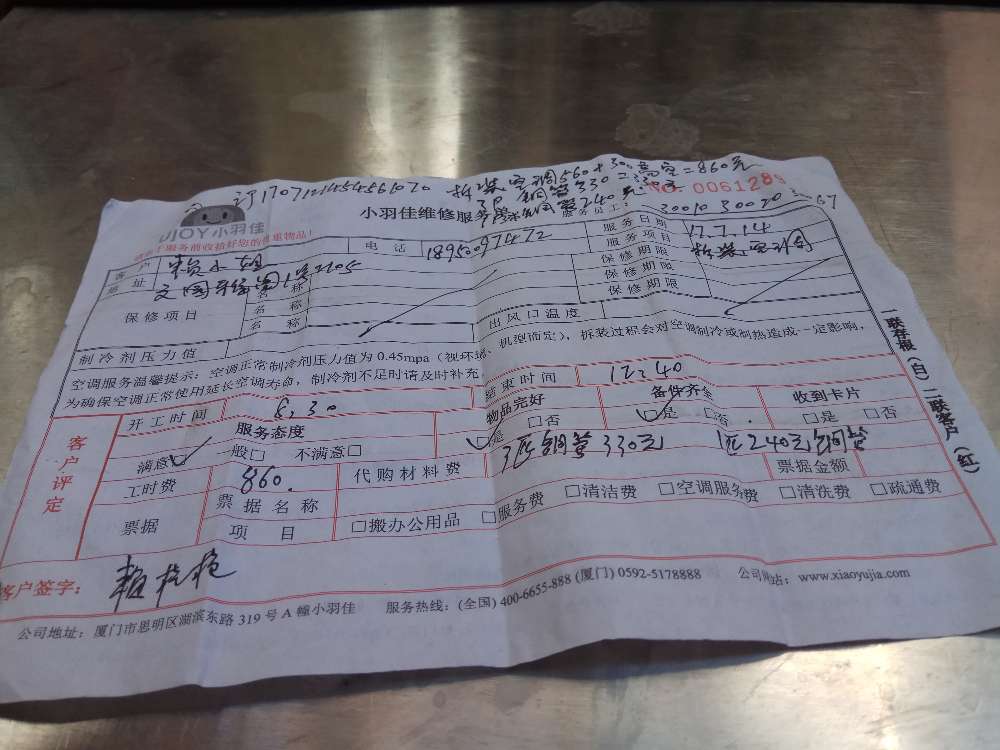 拆装空调560+300高空=860元
3P铜管330元
铜管240元
JOY小羽佳
小羽佳维修服务
服务员工:
30010 30020
No. 0061289
请在服务前收拾好您的贵重物品!
客户 赖小姐 电话 18950097472 服务日期 17.7.14
地址 服务项目 拆装空调
保修项目 名称 保修期限
名称 保修期限
名称 保修期限
制冷剂压力值 出风口温度
空调服务温馨提示:空调正常制冷剂压力值为0.45mpa(视环境、机型而定),拆装过程会对空调制冷或制热造成一定影响,
为确保空调正常使用延长空调寿命,制冷剂不足时请及时补充
开工时间 8:30 结束时间 12:40
客户评定
服务态度 物品完好 备件齐全 收到卡片
满意☑ 一般□ 不满意□ ☑是 □否 ☑是 □否 □是 □否
工时费 860. 代购材料费 3匹铜管330元 1匹240元铜管
票据 票据名称 票据金额
项目 □搬办公用品 □服务费 □清洁费 □空调服务费 □清洗费 □疏通费
客户签字:
公司地址:厦门市思明区湖滨东路319号A幢小羽佳 服务热线:(全国)400-6655-888 (厦门)0592-5178888 公司网站:www.xiaoyujia.com
一联存根(白)二联客户(红)